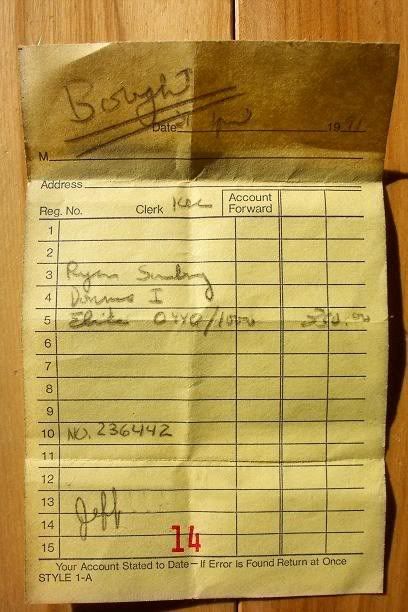 Bought
Date 19
M
Address
Reg. No. Clerk Account Forward
1
2
3 Ryan
4 I
5 0440/1000
6
7
8
9
10 NO. 236442
11
12
13 Jeff
14
15 14
Your Account Stated to Date — If Error is Found Return at Once
STYLE 1-A